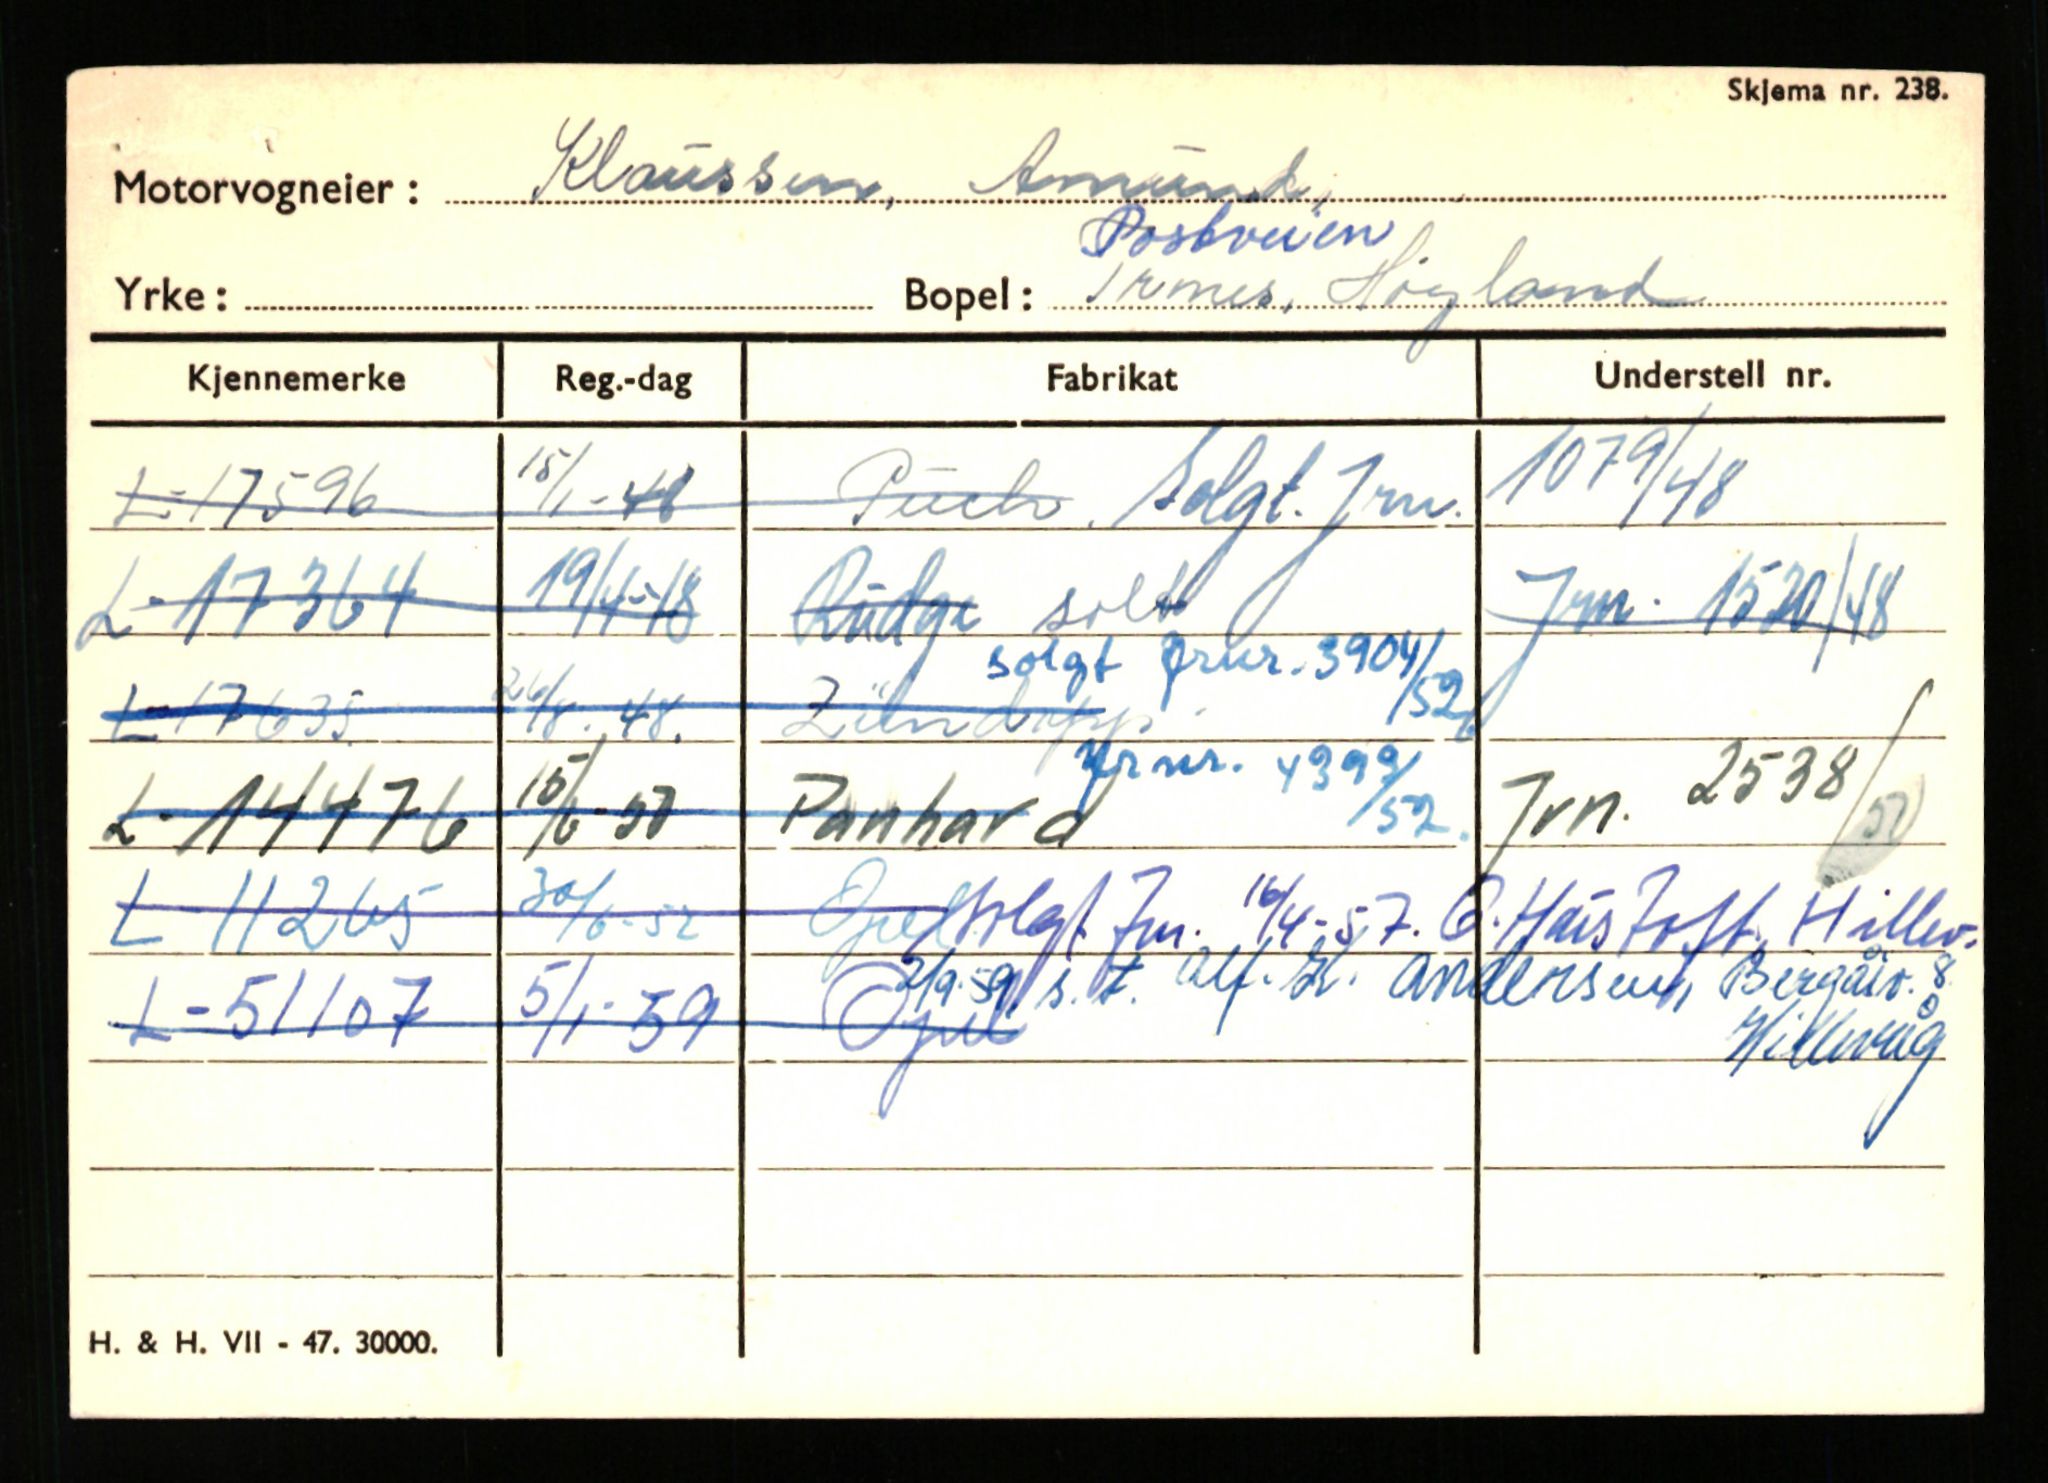 Skjema nr. 238.
Motorvogneier: Klaussen, Amund,
Postveien
Yrke: Bopel: Trones, Höyland
Kjennemerke Reg.-dag Fabrikat Understell nr.
L-17596 15/1-48 Puch. Solgt. Jrn. 1079/48
L-17364 19/4-48 Rudge solt Jrn. 1530/48
solgt Jrnr. 3904/52
L-17635 26/8.48. Zündapp.
Jrnr. 4399/52.
L-14476 15/6-50 Panhard Jrn. 2538/50
L-11265 30/6-52 Opel solgt Jrn. 16/4-57. Haustoft, Hillev.
2/9-59, s.t. Alf. Andersen, Bergåsv. 8
L-51107 5/1-59 Opel Hillevåg
H. & H. VII - 47. 30000.